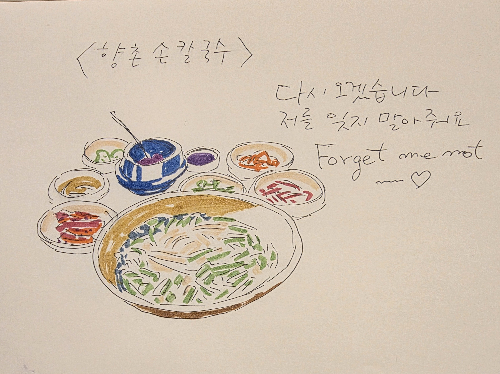 <향촌 손칼국수>
다시 오겠습니다
저를 잊지 말아주세요
Forget me not